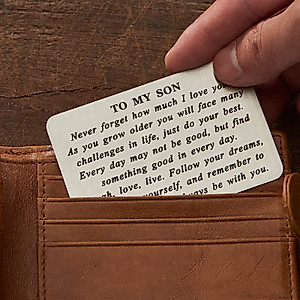 TO MY SON
Never forget how much I love you
As you grow older you will face many
challenges in life, just do your best.
Every day may not be good, but find
something good in every day.
Follow your dreams,
love, live.
yourself, and remember to
always be with you.